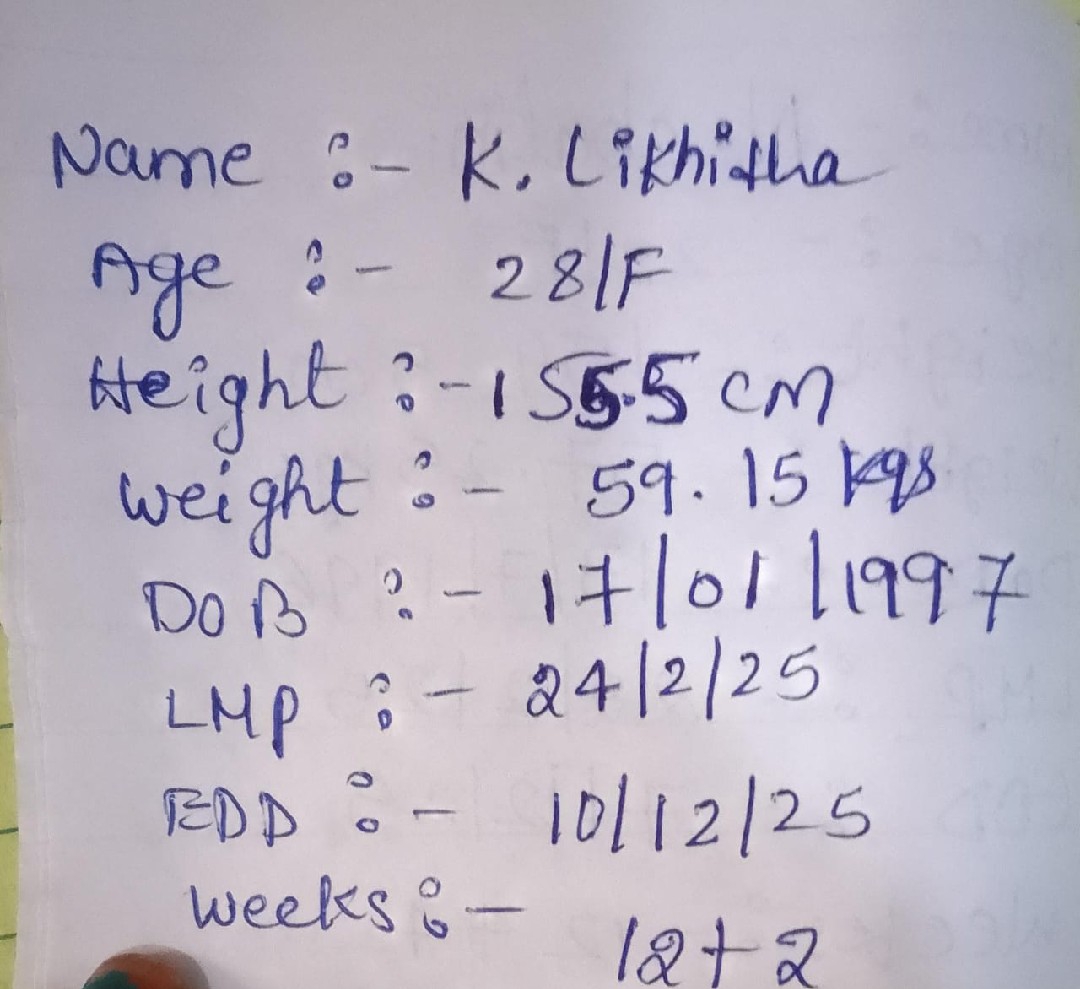 Name :- K. Likhitha
Age :- 28/F
Height :- 155.5 cm
weight :- 59.15 kgs
DOB :- 17/01/1997
LMP :- 24/2/25
EDD :- 10/12/25
weeks :- 12+2